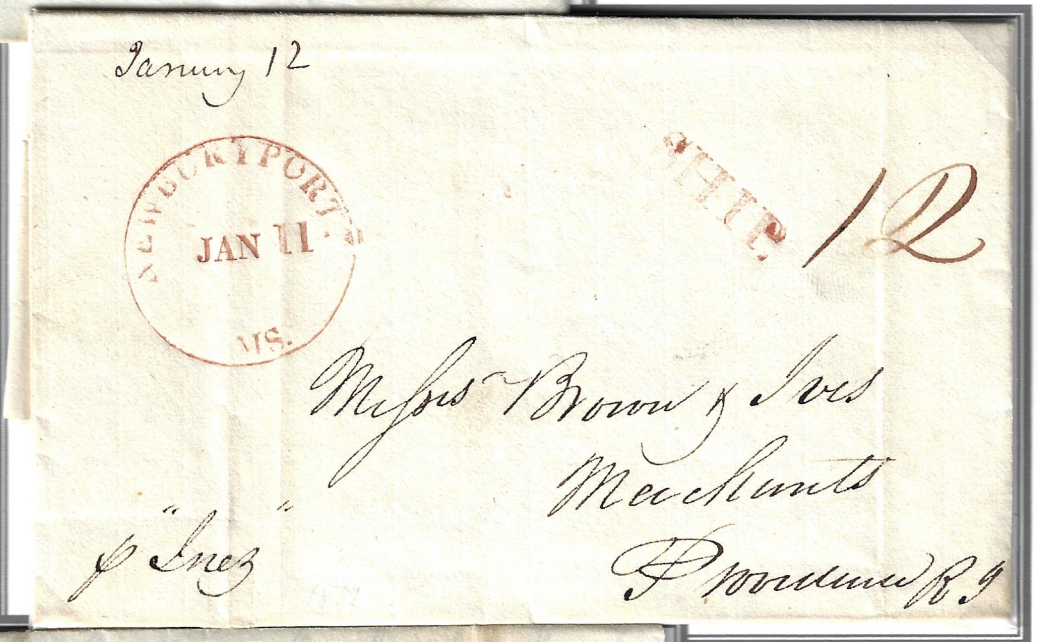 January 12
NEWBURYPORT
JAN 11
MS.
SHIP
12
Messrs Brown & Ives
Merchants
Providence R I
p "Inez"